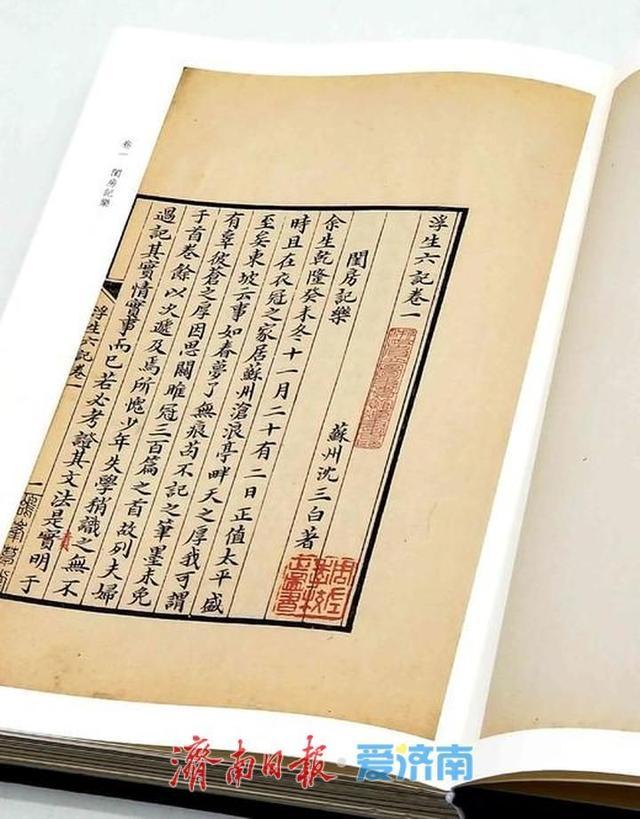 浮生六記卷一
蘇州沈三白著
閨房記樂
余生乾隆癸未冬十一月二十有二日正值太平盛
時且在衣冠之家居蘇州滄浪亭畔天之厚我可謂
至矣東坡云事如春夢了無痕苟不記之筆墨未免
有辜彼蒼之厚因思關雎冠三百篇之首故列夫婦
于首卷餘以次遞及焉所愧少年失學稍識之無不
過記其實情實事而已若必考證其文法是實明于
浮生六記卷一 一
卷一 閨房記樂
濟南日報·爱济南